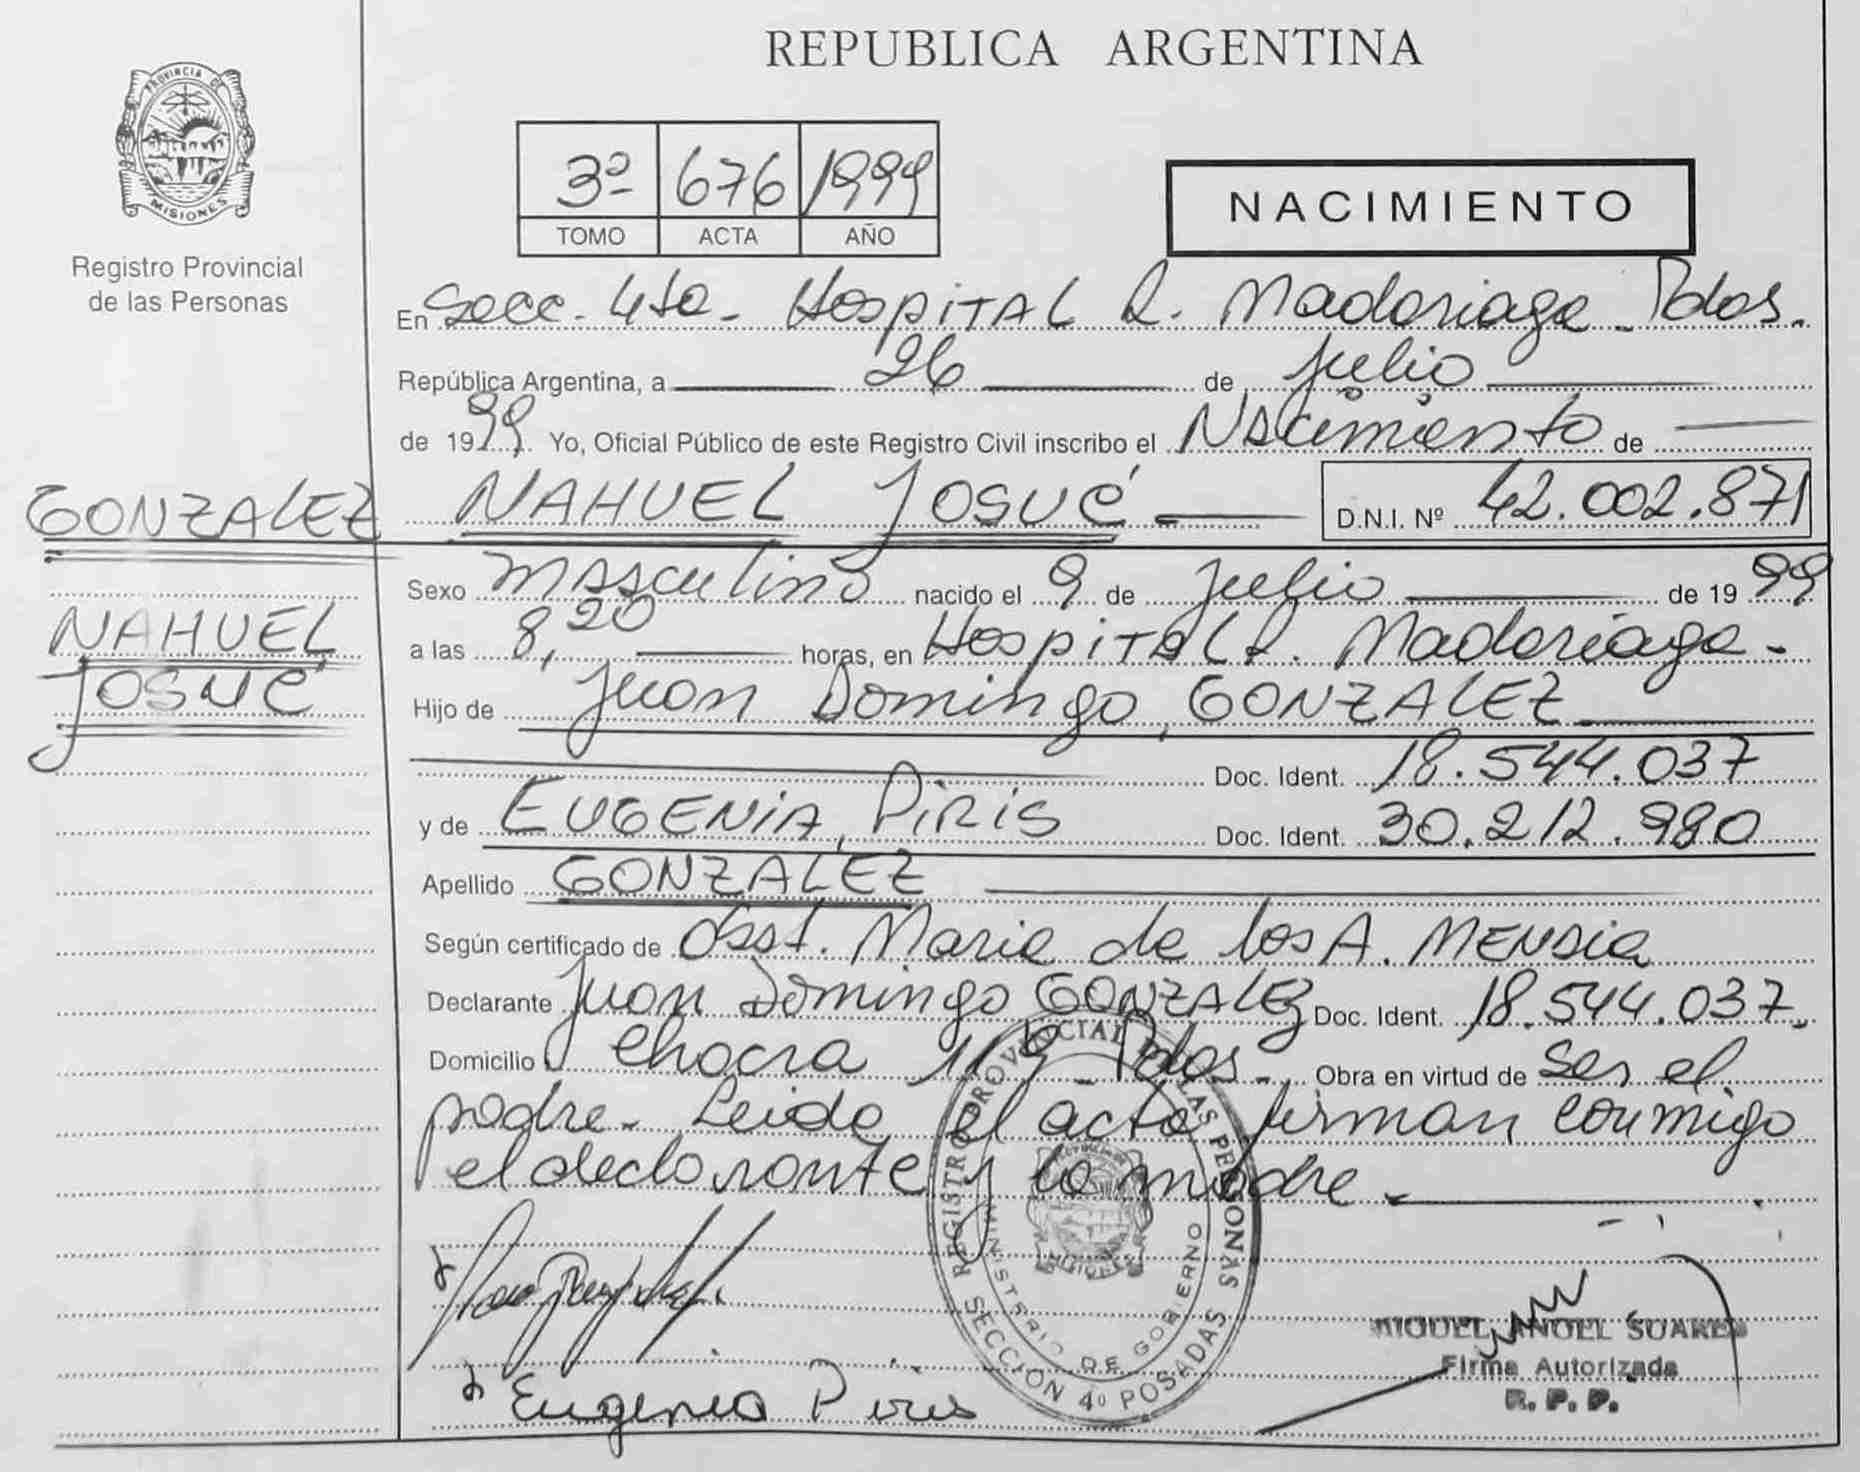 REPUBLICA ARGENTINA
PROVINCIA DE
MISIONES
Registro Provincial
de las Personas
3º 676 1999
TOMO ACTA AÑO
NACIMIENTO
En Secc. 4ta - Hospital R. Madariaga - Pdas.
República Argentina, a 26 de Julio
de 1999. Yo, Oficial Público de este Registro Civil inscribo el Nacimiento de
GONZALEZ
NAHUEL JOSUÉ
D.N.I. Nº 42.002.871
NAHUEL
JOSUÉ
Sexo Masculino nacido el 9 de Julio de 1999
a las 8,20 horas, en Hospital R. Madariaga -
Hijo de Juan Domingo, GONZALEZ
Doc. Ident. 18.544.037
y de EUGENIA, PIRIS Doc. Ident. 30.212.980
Apellido GONZALEZ
Según certificado de Obst. Maria de los A. MENDIA
Declarante Juan Domingo GONZALEZ Doc. Ident. 18.544.037.
Domicilio Chacra 119 - Pdas. - Obra en virtud de ser el
padre - Leida el acta firman conmigo
el declarante y la madre -
REGISTRO PROVINCIAL DE LAS PERSONAS
MINISTERIO DE GOBIERNO
MISIONES
SECCION 4º POSADAS
MIGUEL ANGEL SUAREZ
Firma Autorizada
R. P. P.
Eugenia Piris